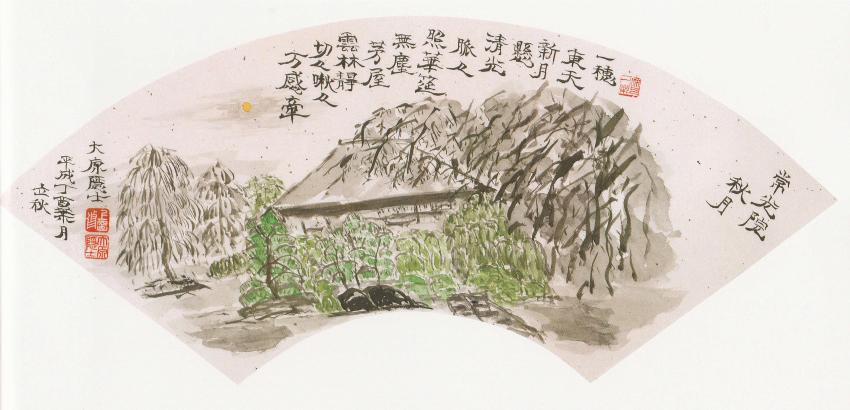 常光院
秋月
一穂
東天
新月
懸
清光
脈々
照華筵
無塵
芳屋
雲林静
切々啾々
万感牽
大原
平成丁酉葉月
立秋